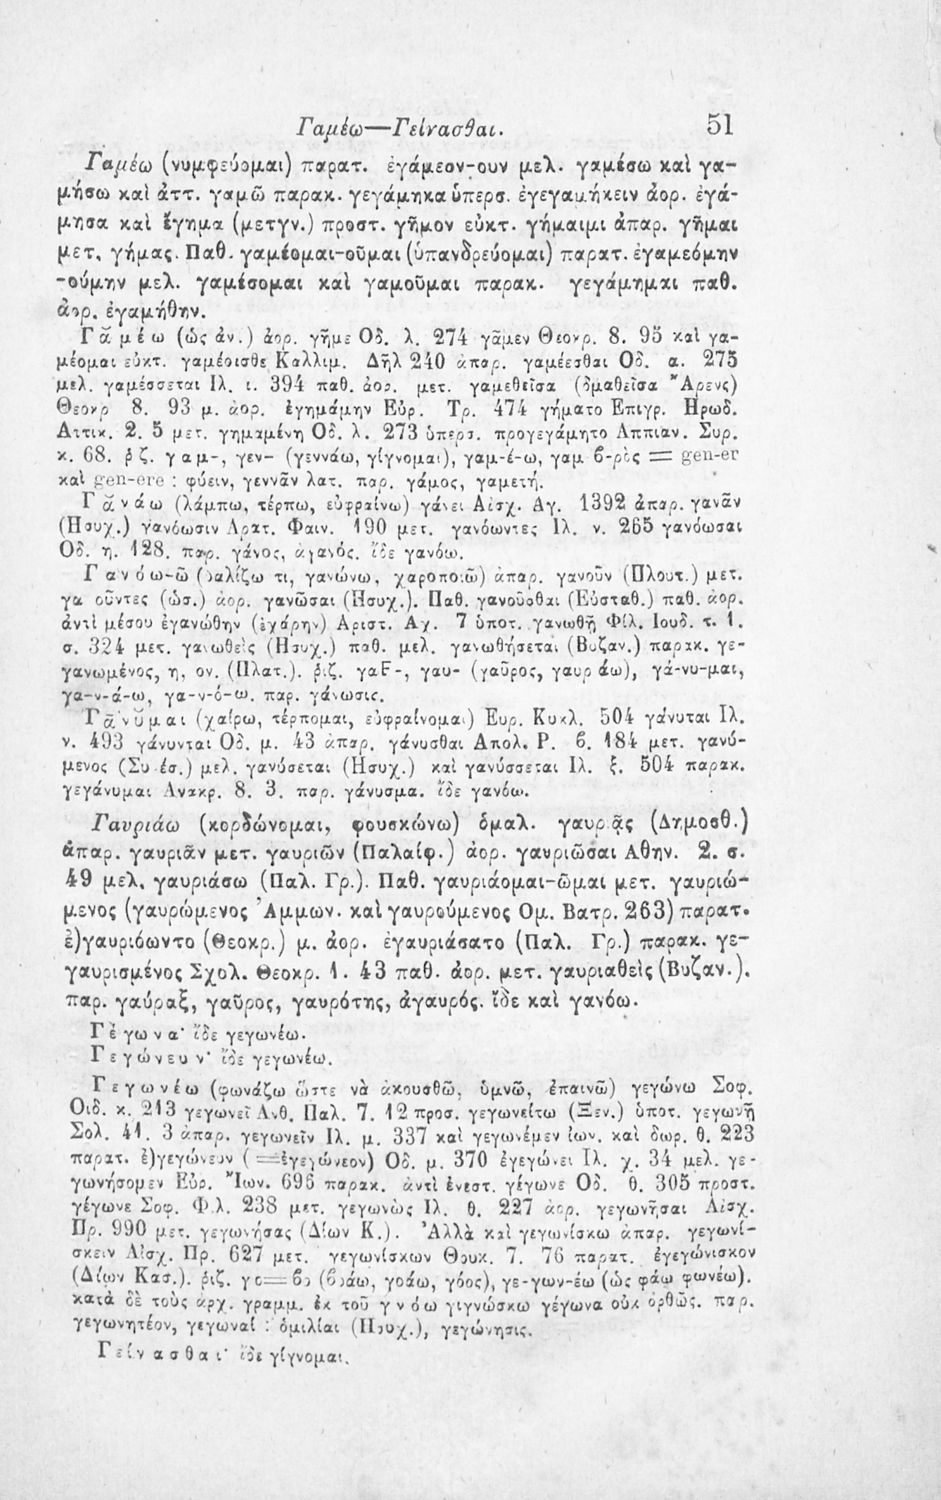 Γαμέω—Γείνασθαι. 51
Γαμέω (νυμφεύομαι) παρατ. ἐγάμεον-ουν μελ. γαμέσω καὶ γα-
μήσω καὶ ἀττ. γαμῶ παρακ. γεγάμηκα ὑπερσ. ἐγεγαμήκειν ἀορ. ἐγά-
μησα καὶ ἔγημα (μετγν.) προστ. γῆμον εὐκτ. γήμαιμι ἀπαρ. γῆμαι
μετ. γήμας. Παθ. γαμέομαι-οῦμαι (ὑπανδρεύομαι) παρατ. ἐγαμεόμην
-ούμην μελ. γαμέσομαι καὶ γαμοῦμαι παρακ. γεγάμημαι παθ.
ἀορ. ἐγαμήθην.
Γᾰμέω (ὡς ἀν.) ἀορ. γῆμε Οδ. λ. 274 γᾶμεν Θεοκρ. 8. 95 καὶ γα-
μέομαι εὐκτ. γαμέοισθε Καλλιμ. Δῆλ 240 ἀπαρ. γαμέεσθαι Οδ. α. 275
μελ. γαμέσσεται Ιλ. ι. 394 παθ. ἀορ. μετ. γαμεθεῖσα (δμαθεῖσα Ἄρενς)
Θεοκρ 8. 93 μ. ἀορ. ἐγημάμην Εὐρ. Τρ. 474 γήματο Επιγρ. Ηρωδ.
Αττικ. 2. 5 μετ. γημαμένη Οδ. λ. 273 ὑπερσ. προγεγάμητο Αππιαν. Συρ.
κ. 68. ῥζ. γαμ-, γεν- (γεννάω, γίγνομαι), γαμ-έ-ω, γαμ ϐ-ρὸς = gen-er
καὶ gen-ere : φύειν, γεννᾶν λατ. παρ. γάμος, γαμετή.
Γᾰνάω (λάμπω, τέρπω, εὐφραίνω) γάνει Αἰσχ. Αγ. 1392 ἀπαρ. γανᾶν
(Ησυχ.) γανόωσιν Αρατ. Φαιν. 190 μετ. γανόωντες Ιλ. ν. 265 γανόωσαι
Οδ. η. 128. παρ. γάνος, ἀγανός. ἴδε γανόω.
Γανόω-ῶ (υαλίζω τι, γανώνω, χαροποιῶ) ἀπαρ. γανοῦν (Πλουτ.) μετ.
γα οῦντες (ὡσ.) ἀορ. γανῶσαι (Ησυχ.). Παθ. γανοῦσθαι (Εὐσταθ.) παθ. ἀορ.
ἀντὶ μέσου ἐγανώθην (ἐχάρην) Αριστ. Αχ. 7 ὑποτ. γανωθῇ Φίλ. Ιουδ. τ. 1.
σ. 324 μετ. γανωθεὶς (Ησυχ.) παθ. μελ. γανωθήσεται (Βυζαν.) παρακ. γε-
γανωμένος, η, ον. (Πλατ.). ῥιζ. γαF-, γαυ- (γαῦρος, γαυράω), γά-νυ-μαι,
γα-ν-ά-ω, γα-ν-ό-ω. παρ. γάνωσις.
Γᾰνυμαι (χαίρω, τέρπομαι, εὐφραίνομαι) Ευρ. Κυκλ. 504 γάνυται Ιλ.
ν. 493 γάνυνται Οδ. μ. 43 ἀπαρ. γάνυσθαι Απολ. Ρ. ϐ. 184 μετ. γανύ-
μενος (Συ έσ.) μελ. γανύσεται (Ησυχ.) καὶ γανύσσεται Ιλ. ξ. 504 παρακ.
γεγάνυμαι Ανακρ. 8. 3. παρ. γάνυσμα. ἴδε γανόω.
Γαυριάω (κορδώνομαι, φουσκώνω) ὁμαλ. γαυριᾷς (Δημοσθ.)
ἀπαρ. γαυριᾶν μετ. γαυριῶν (Παλαίφ.) ἀορ. γαυριῶσαι Αθην. 2. σ.
49 μελ. γαυριάσω (Παλ. Γρ.). Παθ. γαυριάομαι-ῶμαι μετ. γαυριώ-
μενος (γαυρώμενος Ἀμμων. καὶ γαυρούμενος Ομ. Βατρ. 263) παρατ.
ἐ)γαυριόωντο (Θεοκρ.) μ. ἀορ. ἐγαυριάσατο (Παλ. Γρ.) παρακ. γε-
γαυρισμένος Σχολ. Θεοκρ. 1. 43 παθ. ἀορ. μετ. γαυριαθεὶς (Βυζαν.).
παρ. γαύραξ, γαῦρος, γαυρότης, ἀγαυρός. ἴδε καὶ γανόω.
Γέγωνα· ἴδε γεγωνέω.
Γεγώνευν· ἴδε γεγωνέω.
Γεγωνέω (φωνάζω ὥστε νὰ ἀκουσθῶ, ὑμνῶ, ἐπαινῶ) γεγώνω Σοφ.
Οιδ. κ. 213 γεγωνεῖ Ανθ. Παλ. 7. 12 προσ. γεγωνείτω (Ξεν.) ὑποτ. γεγωνῇ
Σολ. 41. 3 ἀπαρ. γεγωνεῖν Ιλ. μ. 337 καὶ γεγωνέμεν ἰων. καὶ δωρ. θ. 223
παρατ. ἐ)γεγώνευν (=ἐγεγώνεον) Οδ. μ. 370 ἐγεγώνει Ιλ. χ. 34 μελ. γε-
γωνήσομεν Εὐρ. Ἴων. 696 παρακ. ἀντὶ ἐνεστ. γέγωνε Οδ. θ. 305 προστ.
γέγωνε Σοφ. Φιλ. 238 μετ. γεγωνὼς Ιλ. θ. 227 ἀορ. γεγωνῆσαι Αἰσχ.
Πρ. 990 μετ. γεγωνήσας (Δίων Κ.). Ἀλλὰ καὶ γεγωνίσκω ἀπαρ. γεγωνί-
σκειν Αἰσχ. Πρ. 627 μετ. γεγωνίσκων Θουκ. 7. 76 παρατ. ἐγεγώνισκον
(Δίων Κασ.). ῥιζ. γο=ϐο (ϐοάω, γοάω, γόος), γε-γων-έω (ὡς φάω φωνέω).
κατὰ δὲ τοὺς ἀρχ. γραμμ. ἐκ τοῦ γνόω γιγνώσκω γέγωνα οὐκ ὀρθῶς. παρ.
γεγωνητέον, γεγωναί : ὁμιλίαι (Ησυχ.), γεγώνησις.
Γείνασθαι· ἴδε γίγνομαι.